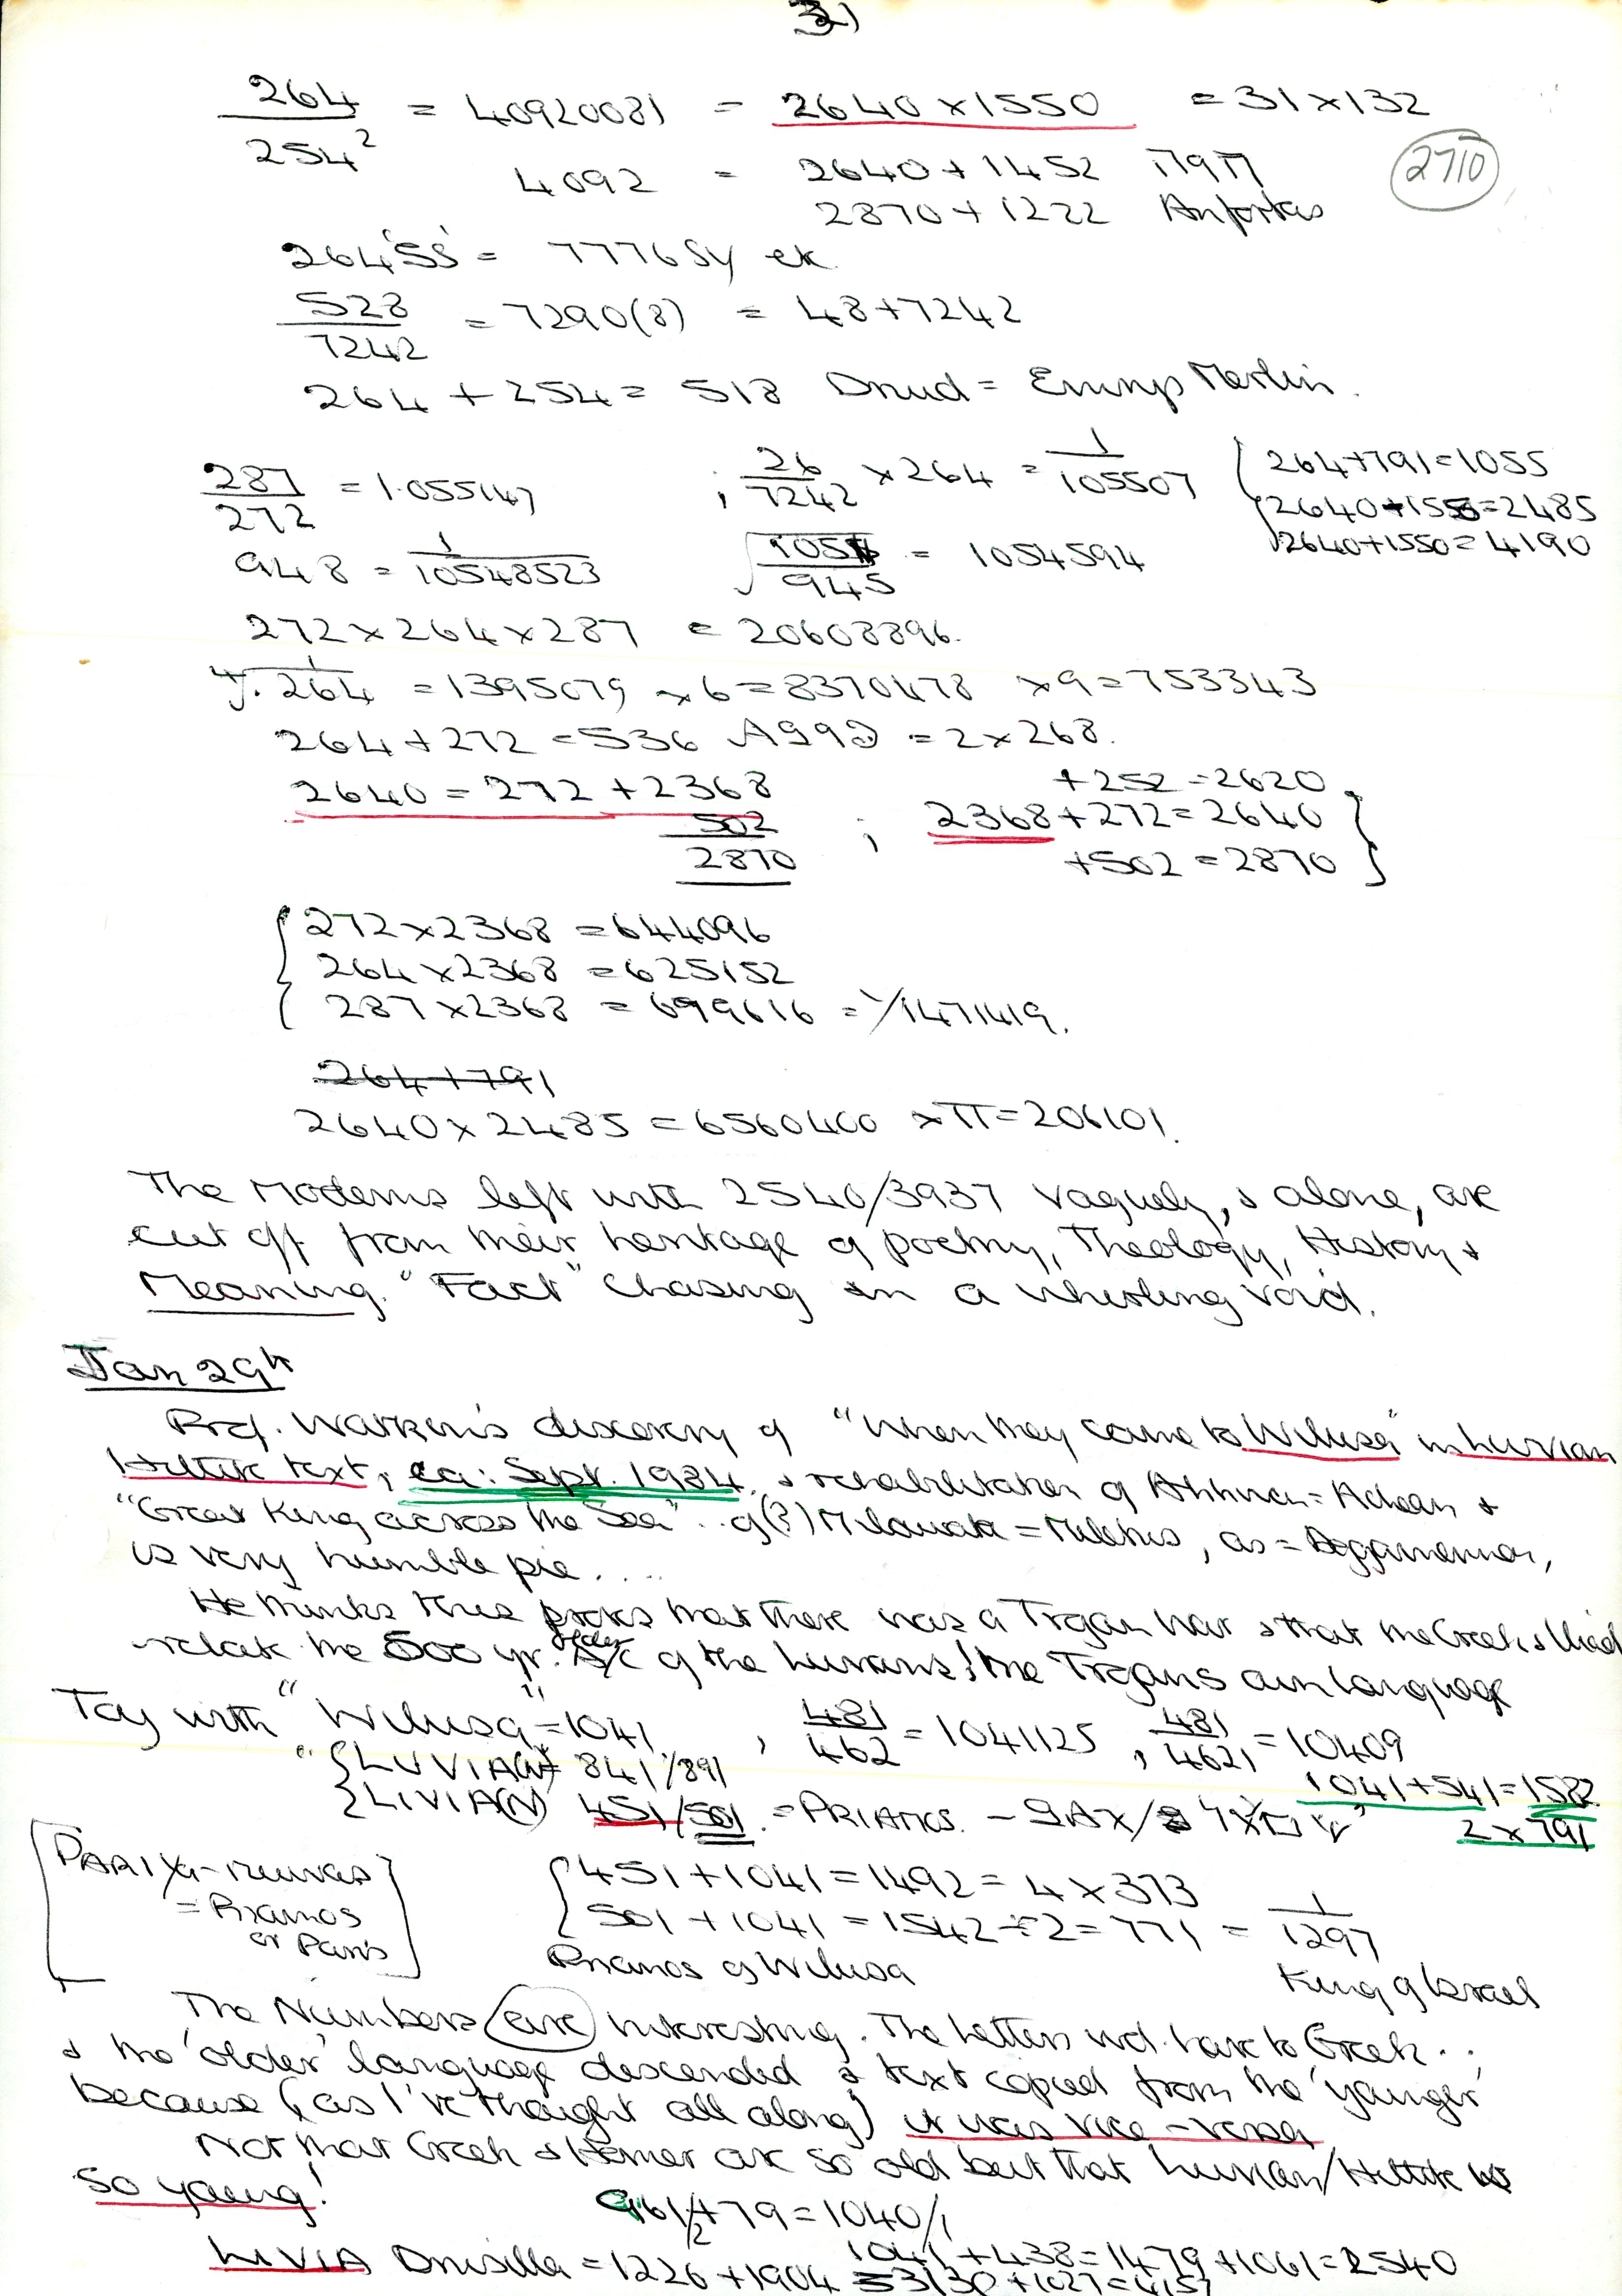 3)
264/254² = 40920081 = 2640 x 1550 = 31 x 132
2710
4092 = 2640 + 1452
2870 + 1222 Anfortas
264'55' = 77765y
528/7242 = 7290(8) = 48 + 7242
264 + 254 = 518 Druid = Emrys Merlin.
287/272 = 1.055147 ; 26/7242 x 264 = 1/105507 { 264+791=1055
2640+1550=4190
948 = 1/10548523 = 1054594
272 x 264 x 287 = 20608896.
264 = 1395079 x 6 = 8370478 x 9 = 753343
264 + 272 = 536 = 2 x 268.
2640 = 272 + 2368 +252 = 2620
502 ; 2368 + 272 = 2640 }
2870 +502 = 2870
{ 272 x 2368 = 644096
264 x 2368 = 625152
287 x 2368 = 699616 = 1/1471419.
264 + 791
2640 x 2485 = 6560400 x π = 206101.
The Moderns left with 2540/3937 vaguely, & alone, are
cut off from their heritage of poetry, Theology, History &
Meaning. "Fact" Chasing in a whistling void.
Jan 29th
Prof. Watkin's discovery of "When they came to Wilusa" in Luvian
Hittite text, ca: Sept. 1984. & rehabilitation of = Achean &
"Great King across the Sea".. of (?) Milawata = Miletus, as = Aggamemnon,
is very humble pie....
He thinks this proves that there was a Trojan War & that the Greek Iliad
relates the 500 yr. older of the Luvians! the Trojans own language
Toy with "Wilusa" = 1041, 481/462 = 1041125, 481/4621 = 10409
" { LUVIA(N) 841/891 1041 + 541 = 1582
{ LIVIA(N) 451/501. = PRIAMOS. 2 x 791
= Priamos
or Paris
{ 451 + 1041 = 1492 = 4 x 373
501 + 1041 = 1542 ÷ 2 = 771 = 1/1297
Priamos of Wilusa King of Israel
The Numbers (are) interesting. The Letters wd. have to Greek..
& the 'older' language descended & text copied from the 'younger'
because (as I've thought all along) it was vice-versa
Not that Greek & Homer are so old but that Luvian/Hittite is
so young!
961/2+79=1040/1
1041 + 438 = 1479 + 1061 = 2540
LIVIA Drusilla = 1226 + 1904 = 3130 + 1027 = 4157